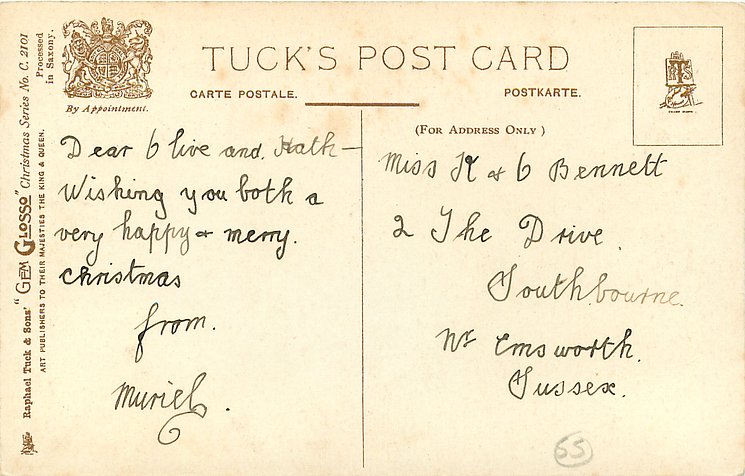 TUCK'S POST CARD
By Appointment.
CARTE POSTALE.
POSTKARTE.
(FOR ADDRESS ONLY)
TRADE MARK
Raphael Tuck & Sons' "GEM GLOSSO" Christmas Series No. C. 2101
ART PUBLISHERS TO THEIR MAJESTIES THE KING & QUEEN.
Processed
in Saxony.
Dear Olive and Kath -
Wishing you both a
very happy & merry.
christmas
from.
Muriel.
Miss K & O Bennett
2 The Drive.
Southbourne.
Nr Emsworth.
Sussex.
55